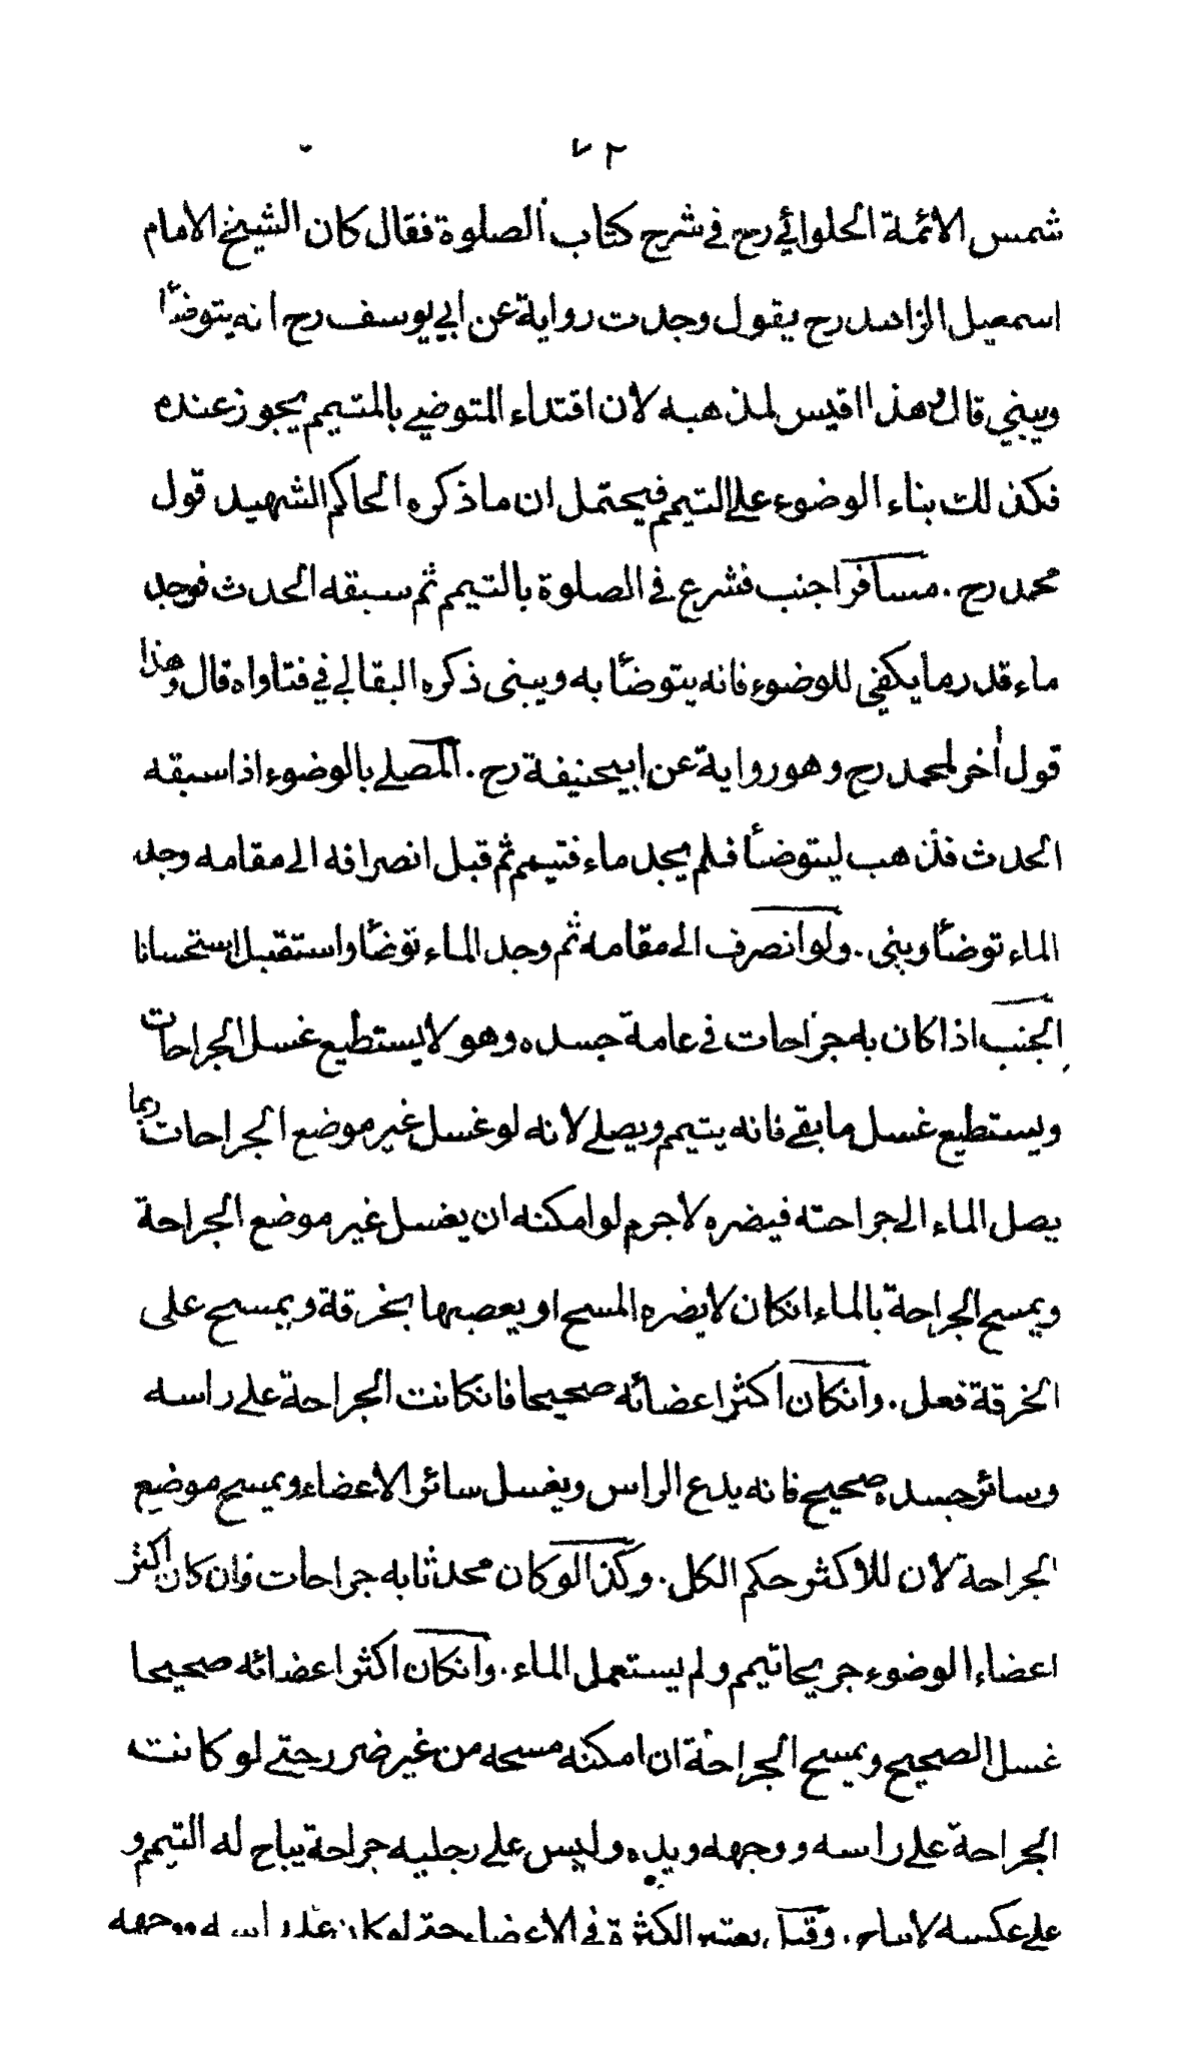 ٧٢
شمس الائمة الحلوائي رح في شرح كتاب الصلوة فقال كان الشيخ الامام
اسمعيل الزاهد رح يقول وجدت رواية عن ابي يوسف رح انه يتوضأ
ويبني قال وهذا اقيس لمذهبه لان اقتداء المتوضي بالمتيمم يجوز عنده
فكذلك بناء الوضوء على التيمم فيحتمل ان ما ذكره الحاكم الشهيد قول
محمد رح . مسافر اجنب فشرع في الصلوة بالتيمم ثم سبقه الحدث فوجد
ماء قدر ما يكفي للوضوء فانه يتوضأ به ويبنى ذكره البقالي في فتاواه قال وهذا
قول أخر لمحمد رح وهو رواية عن ابيحنيفة رح . المصلي بالوضوء اذا سبقه
الحدث فذهب ليتوضأ فلم يجد ماء فتيمم ثم قبل انصرافه الى مقامه وجد
الماء توضأ وبنى . ولو انصرف الى مقامه ثم وجد الماء توضأ واستقبل استحسانا
الجنب اذا كان به جراحات في عامة جسده وهو لا يستطيع غسل الجراحات
ويستطيع غسل ما بقي فانه يتيمم ويصلي لانه لو غسل غير موضع الجراحات ربما
يصل الماء الى جراحته فيضره لا جرم لو امكنه ان يغسل غير موضع الجراحة
ويمسح الجراحة بالماء انكان لا يضره المسح او يعصبها بخرقة ويمسح على
الخرقة فعل . وانكان اكثر اعضائه صحيحا فانكانت الجراحة على راسه
وسائر جسده صحيح فانه يدع الراس ويغسل سائر الاعضاء ويمسح موضع
الجراحة لان للاكثر حكم الكل . وكذا لو كان محدثا به جراحات فان كان اكثر
اعضاء الوضوء جريحا تيمم ولم يستعمل الماء . وانكان اكثر اعضائه صحيحا
غسل الصحيح ويمسح الجراحة ان امكنه مسحه من غير ضرر حتى لو كانت
الجراحة على راسه ووجهه ويده وليس على رجليه جراحة يباح له التيمم و
على عكسه لا يباح . وقيل يعتبر الكثرة في الاعضاء حتى لو كان على راسه ووجهه